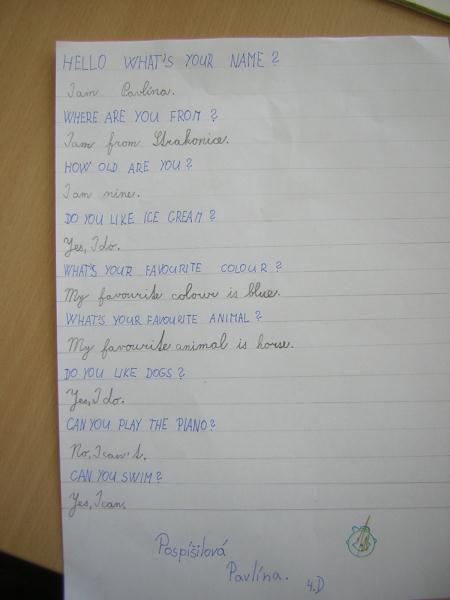 HELLO WHAT'S YOUR NAME?
I am Pavlína.
WHERE ARE YOU FROM?
I am from Strakonice.
HOW OLD ARE YOU?
I am nine.
DO YOU LIKE ICE CREAM?
Yes, I do.
WHAT'S YOUR FAVOURITE COLOUR?
My favourite colour is blue.
WHAT'S YOUR FAVOURITE ANIMAL?
My favourite animal is horse.
DO YOU LIKE DOGS?
Yes, I do.
CAN YOU PLAY THE PIANO?
No, I can't.
CAN YOU SWIM?
Yes, I can.
Pospíšilová
Pavlína. 4.D